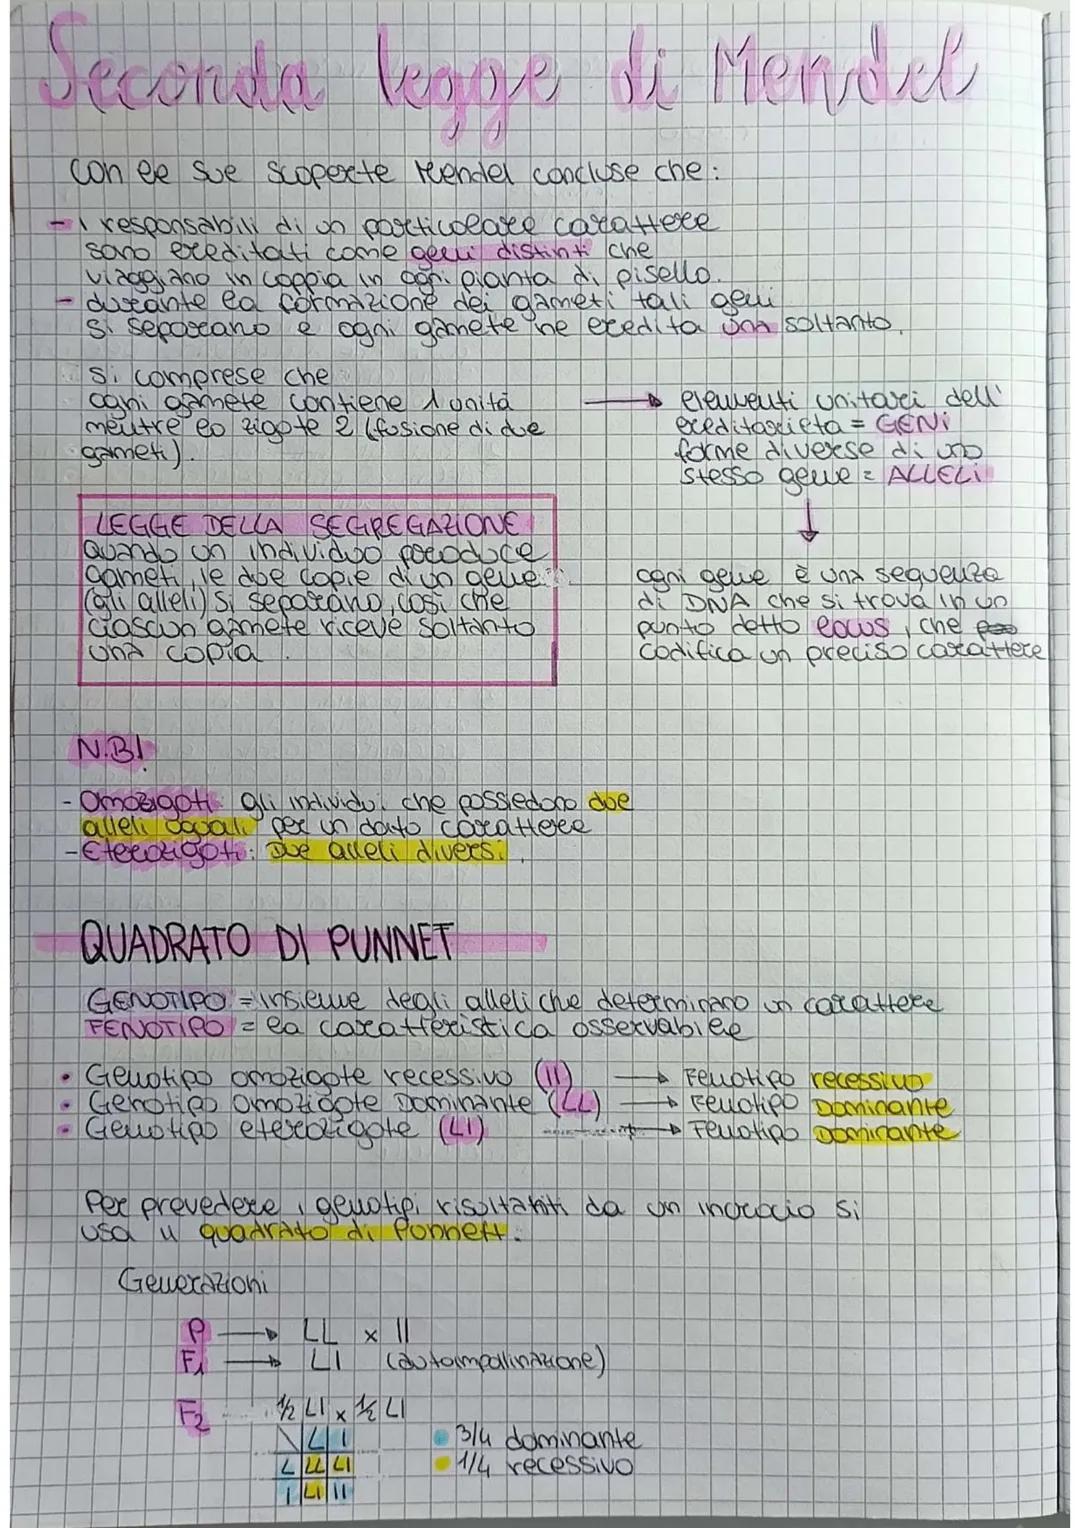 Seconda legge di Mendel
Con le sue scoperte Mendel concluse che:
- i responsabili di un particolare carattere
sono ereditati come geni distinti che
viaggiano in coppia in ogni pianta di pisello.
- durante la formazione dei gameti tali geni
si separano e ogni gamete ne eredita una soltanto.
Si comprese che
ogni gamete contiene 1 unità
mentre lo zigote 2 (fusione di due
gameti).
→ elementi unitari dell'
ereditarietà = GENI
forme diverse di uno
stesso gene = ALLELI
↓
ogni gene è una sequenza
di DNA che si trova in un
punto detto locus, che
codifica un preciso carattere
LEGGE DELLA SEGREGAZIONE
Quando un individuo produce
gameti, le due copie di un gene
(gli alleli) si separano, così che
ciascun gamete riceve soltanto
una copia.
N.B!
- Omozigoti: gli individui che possiedono due
alleli uguali per un dato carattere
- Eterozigoti: Due alleli diversi.
QUADRATO DI PUNNET
GENOTIPO = insieme degli alleli che determinano un carattere
FENOTIPO = la caratteristica osservabile
• Genotipo omozigote recessivo (ll) → Fenotipo recessivo
• Genotipo omozigote Dominante (LL) → Fenotipo Dominante
• Genotipo eterozigote (Ll) → Fenotipo Dominante
Per prevedere i genotipi risultanti da un incrocio si
usa il quadrato di Punnett.
Generazioni
P → LL x ll
F1 → Ll (autoimpollinazione)
F2 1/2 Ll x 1/2 Ll
L l
L LL Ll
l Ll ll
3/4 dominante
1/4 recessivo